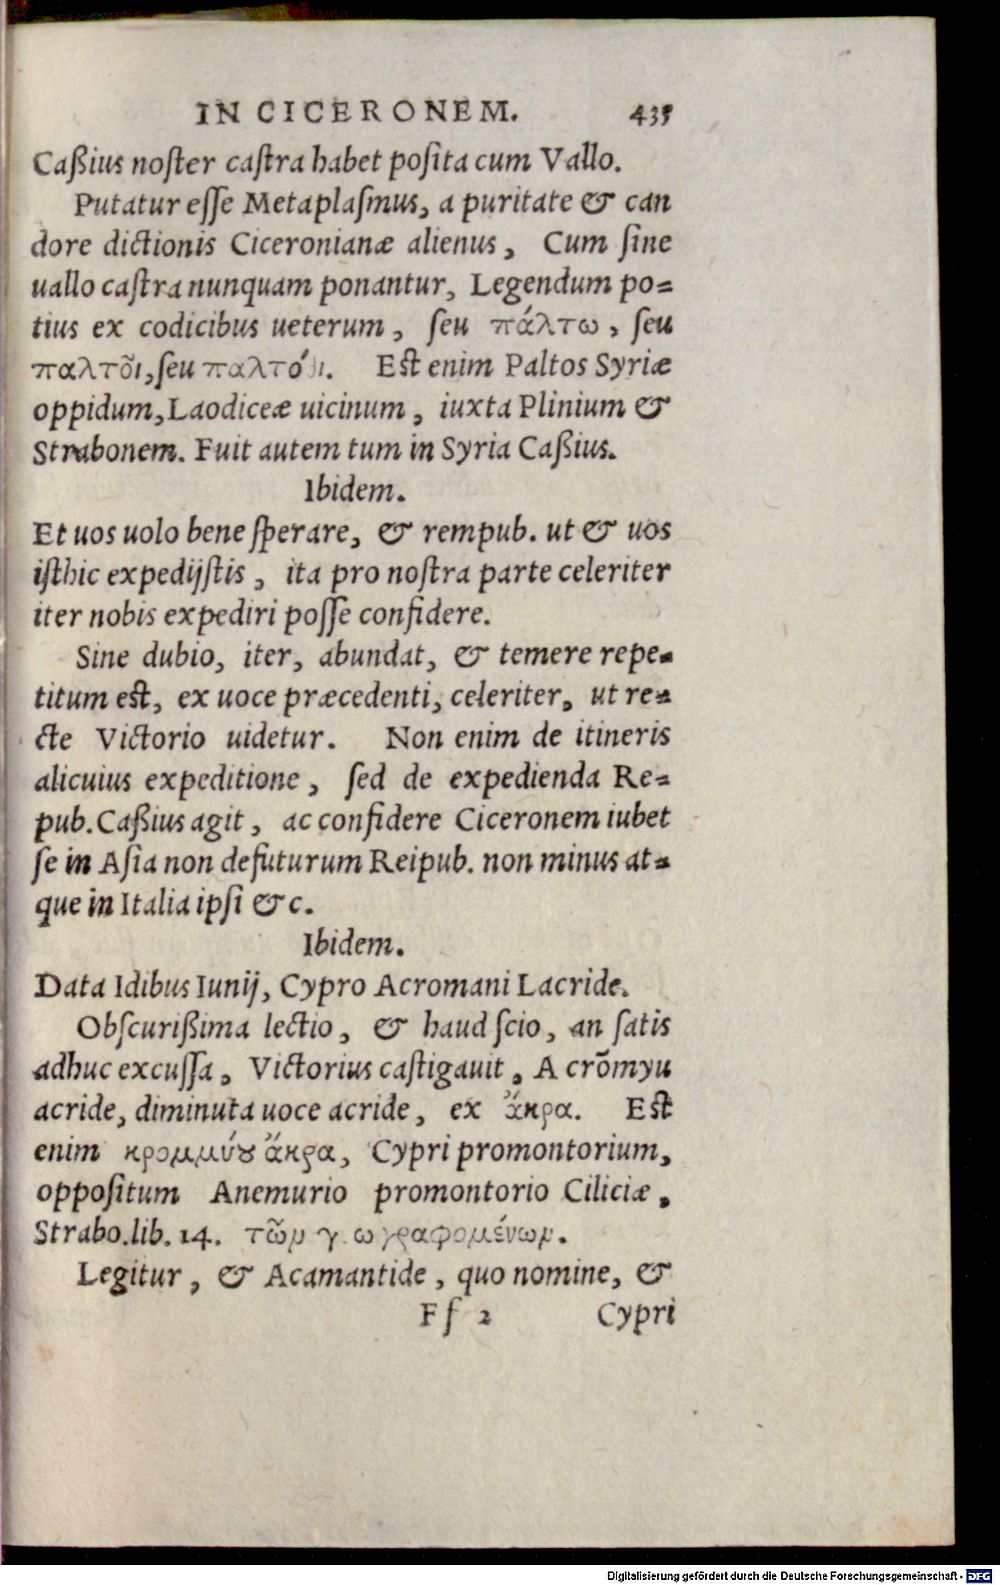 IN CICERONEM. 435
Caßius noſter caſtra habet poſita cum Vallo.
Putatur eſſe Metaplaſmus, a puritate & can
dore dictionis Ciceronianæ alienus, Cum ſine
uallo caſtra nunquam ponantur, Legendum po=
tius ex codicibus ueterum, ſeu πάλτω, ſeu
παλτο͂ι, ſeu παλτό ι. Eſt enim Paltos Syriæ
oppidum, Laodiceæ uicinum, iuxta Plinium &
Strabonem. Fuit autem tum in Syria Caßius.
Ibidem.
Et uos uolo bene ſperare, & rempub. ut & uos
iſthic expedijſtis, ita pro noſtra parte celeriter
iter nobis expediri poſſe confidere.
Sine dubio, iter, abundat, & temere repe=
titum eſt, ex uoce præcedenti, celeriter, ut re=
cte Victorio uidetur. Non enim de itineris
alicuius expeditione, ſed de expedienda Re=
pub. Caßius agit, ac confidere Ciceronem iubet
ſe in Aſia non defuturum Reipub. non minus at=
que in Italia ipſi &c.
Ibidem.
Data Idibus Iunij, Cypro Acromani Lacride.
Obſcurißima lectio, & haud ſcio, an ſatis
adhuc excuſſa, Victorius caſtigauit, A crōmyu
acride, diminuta uoce acride, ex ἄκρα. Eſt
enim κρομμύȣ ἄκρα, Cypri promontorium,
oppoſitum Anemurio promontorio Ciliciæ,
Strabo. lib. 14. τῶν γ ωγραφομένων.
Legitur, & Acamantide, quo nomine, &
Ff 2 Cypri
Digitalisierung gefördert durch die Deutsche Forschungsgemeinschaft - DFG